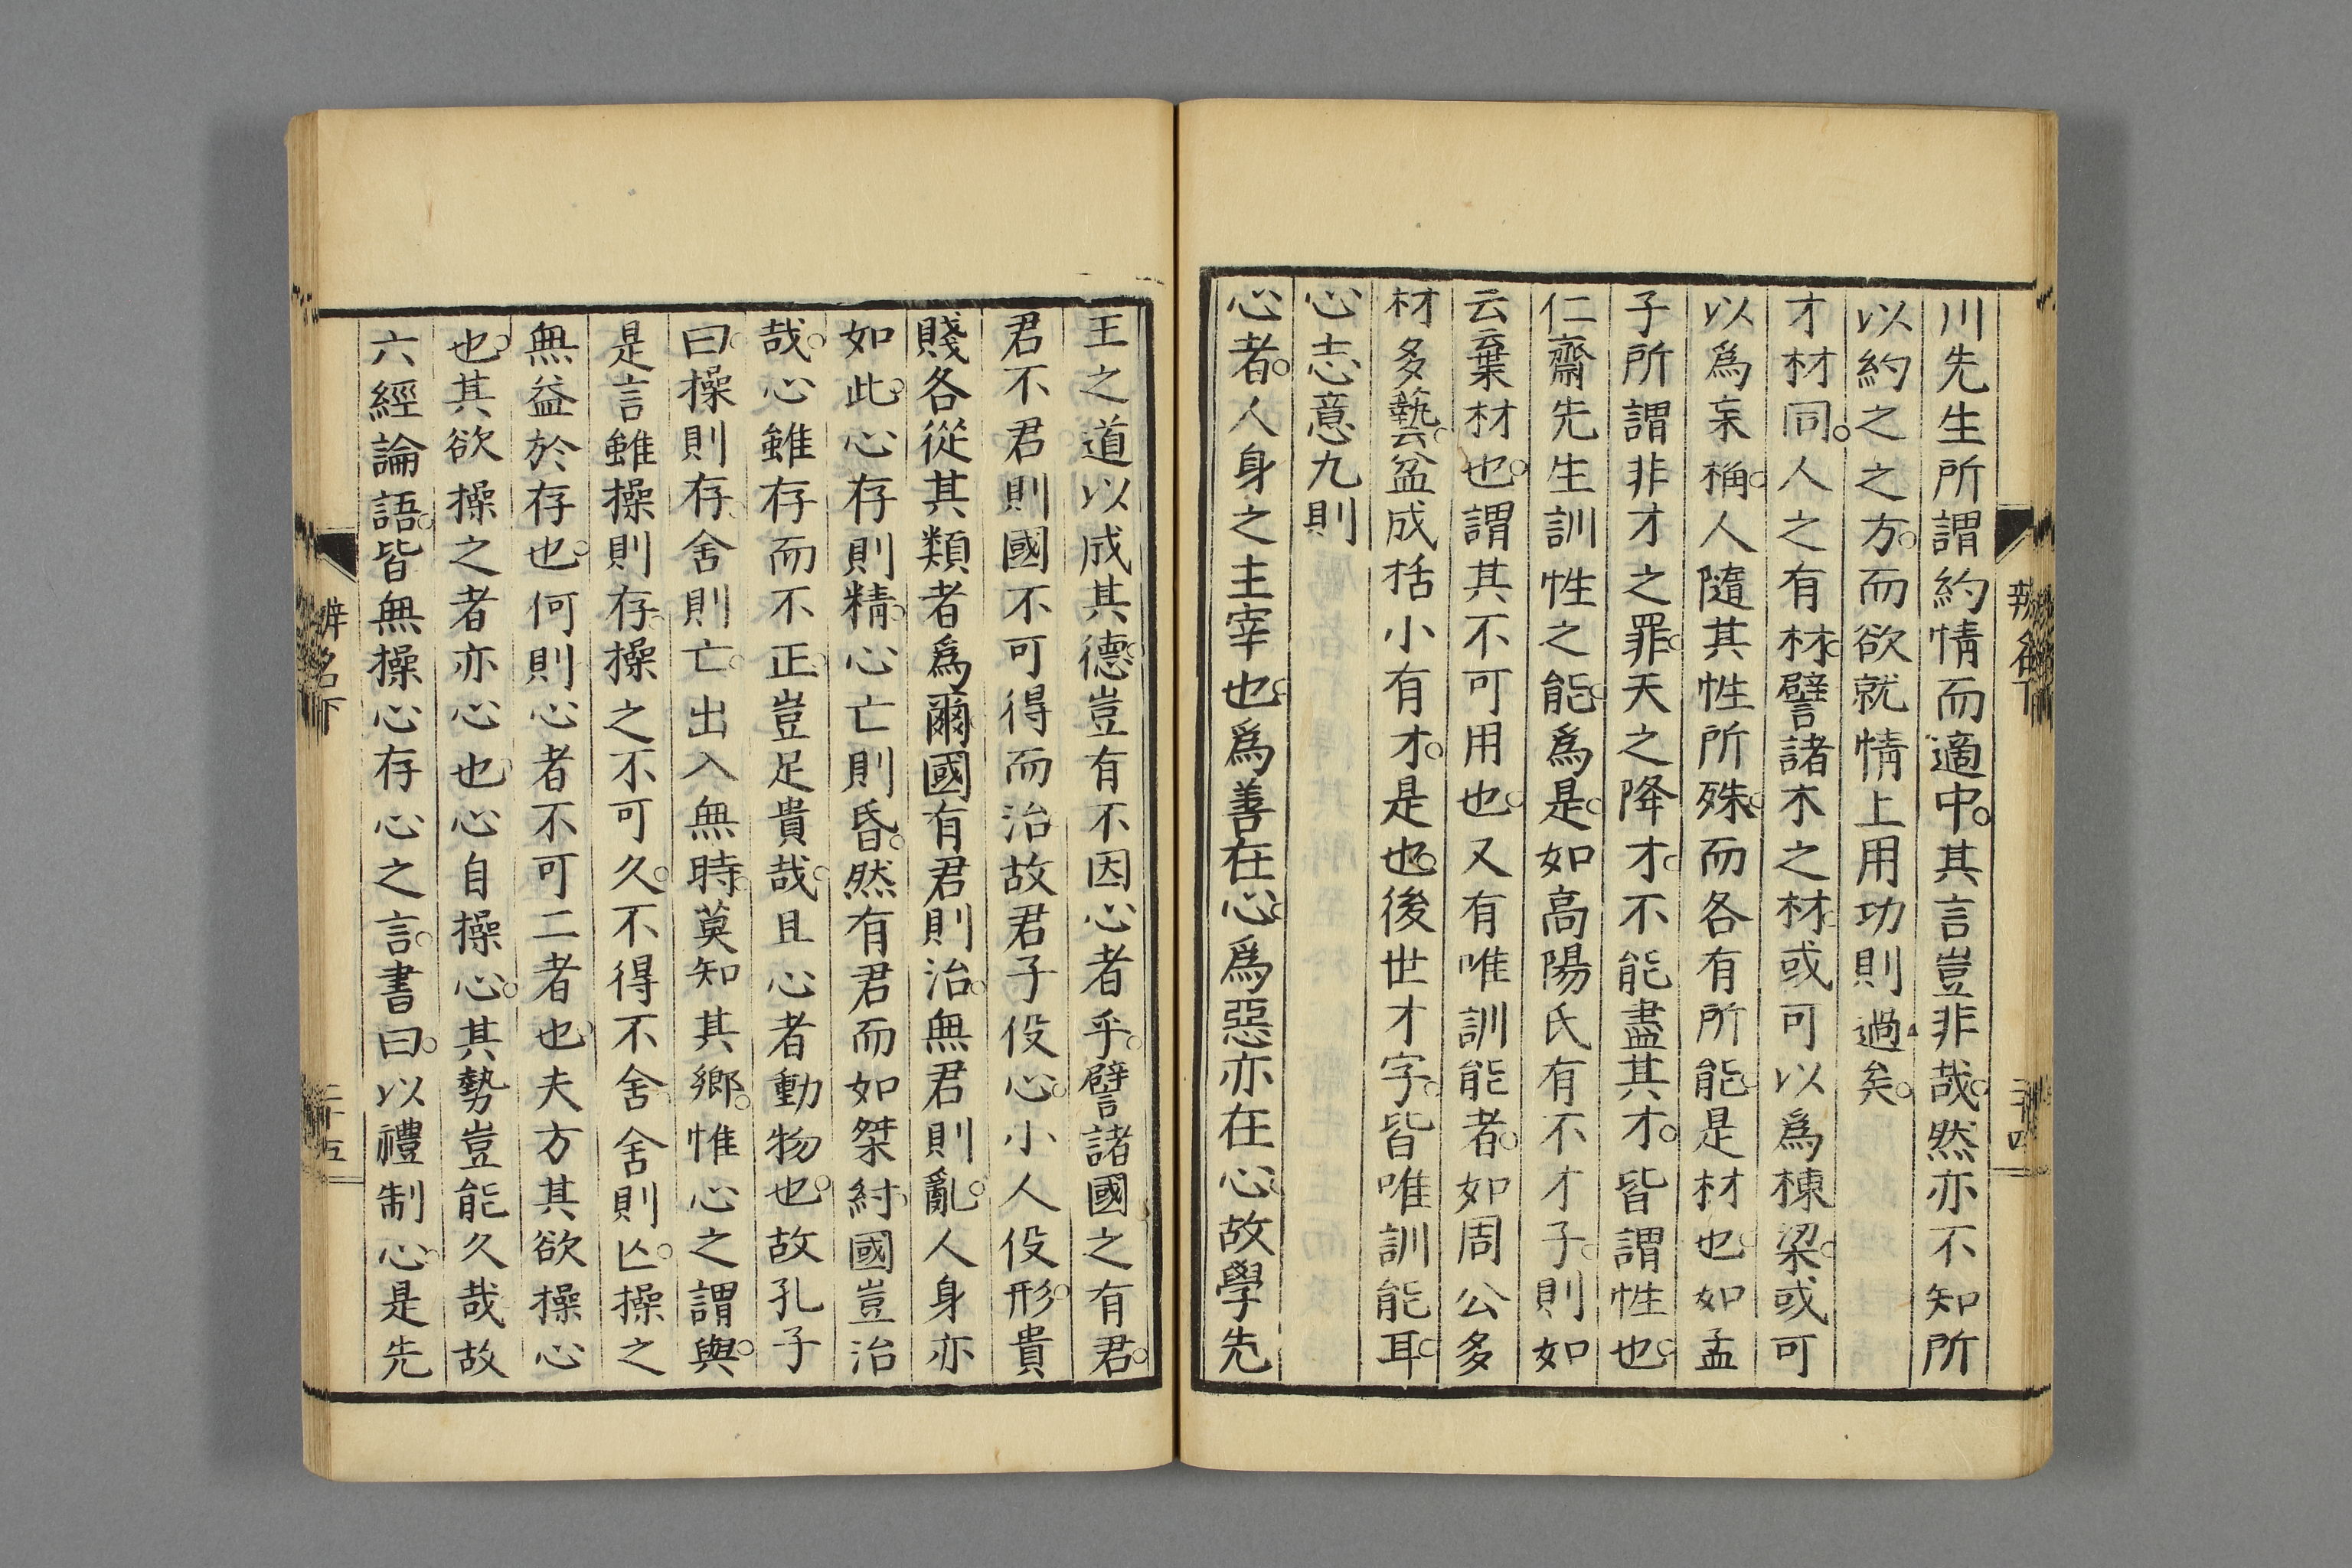 川先生所謂約情而適中。其言豈非哉。然亦不知所
以約之之方。而欲就情上用功則過矣。
才材同。人之有材。譬諸木之材。或可以爲棟梁。或可
以爲杗桷。人隨其性所殊。而各有所能。是材也。如孟
子所謂非才之罪。天之降才。不能盡其才。皆謂性也。
仁齋先生訓性之能。爲是。如高陽氏有不才子。則如
云棄材也。謂其不可用也。又有唯訓能者。如周公多
材多藝。云盆成括小有才。是也。後世才字。皆唯訓能耳。
心志意九則
心者。人身之主宰也。爲善在心。爲惡亦在心。故學先
辨名下
二十四
王之道以成其德。豈有不因心者乎。譬諸國之有君。
君不君則國不可得而治。故君子役心。小人役形。貴
賤各從其類者爲爾。國有君則治。無君則亂。人身亦
如此。心存則精。心亡則昏。然有君而如桀紂。國豈治
哉。心雖存而不正。豈足貴哉。且心者動物也。故孔子
曰。操則存。舍則亡。出入無時。莫知其鄉。惟心之謂與。
是言雖操則存。操之不可久。不得不舍。舍則亾。操之
無益於存也。何則心者不可二者也。夫方其欲操心
也。其欲操之者亦心也。心自操心。其勢豈能久哉。故
六經論語。皆無操心存心之言。書曰。以禮制心。是先
辨名下
二十五